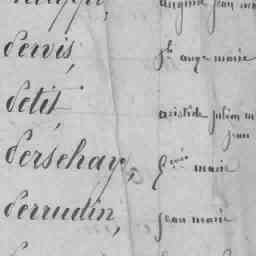 Pervis, Jh ange marie
Petit, aristide julien m
jean
Persehay, fçois marie
Perrudin, jean marie